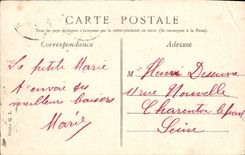 CARTE POSTALE
Tous les pays étrangers n'acceptent pas la correspondance au recto. (Se renseigner à la Poste).
Correspondance
Adresse
La petite Marie
t'envoie ses
meilleurs baisers
Marie
M Henri
11 rue Nouvelle
Charenton le pont
Seine